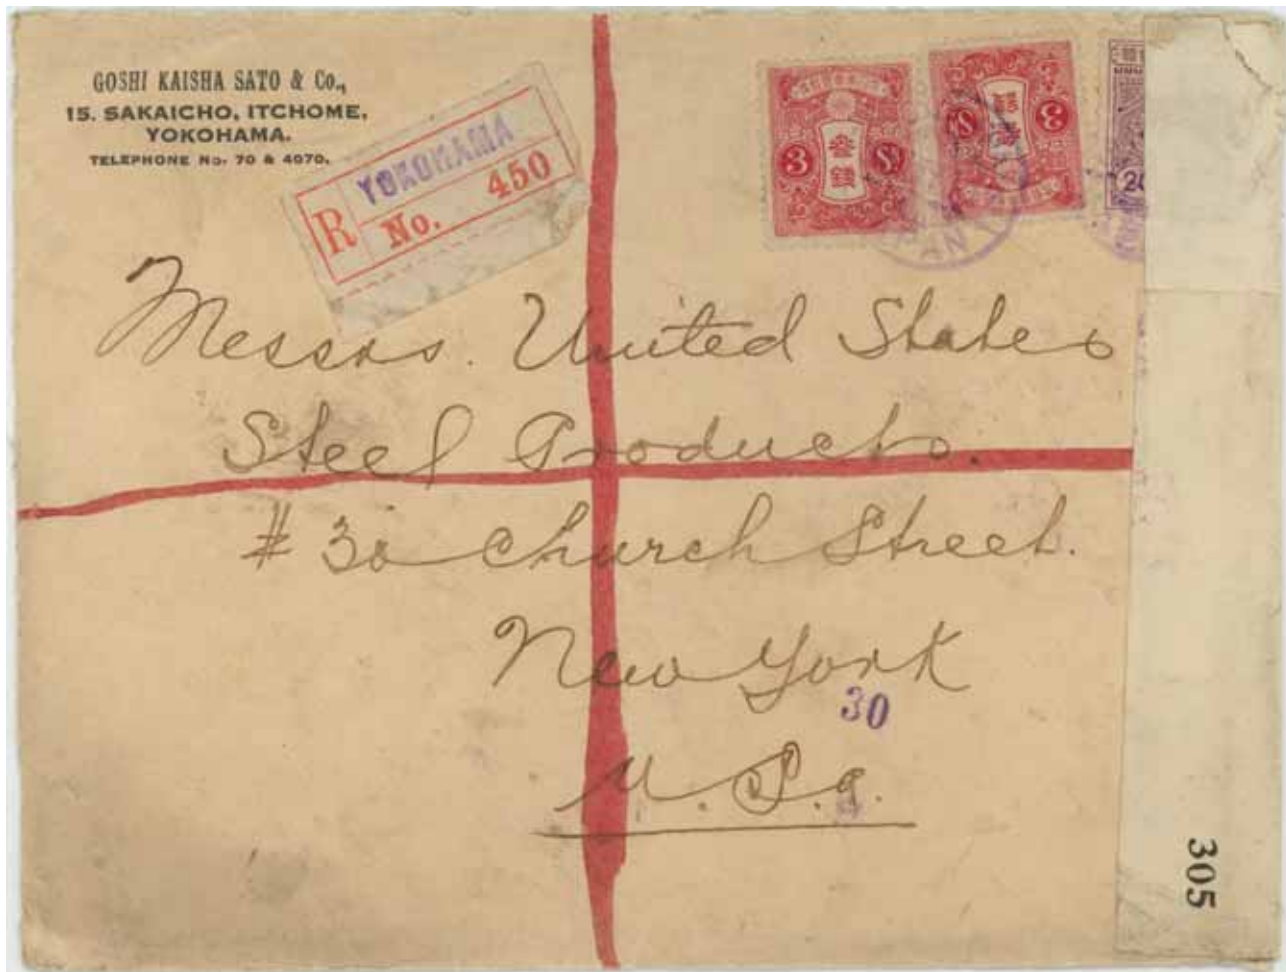 GOSHI KAISHA SATO & Co.,
15. SAKAICHO, ITCHOME,
YOKOHAMA.
TELEPHONE No. 70 & 4070.
R YOKOHAMA
No. 450
3 叁銭 Sn
3 叁銭 Sn
Messrs. United States
Steel Products.
# 30 Church Street.
New York
30
U.S.a.
305